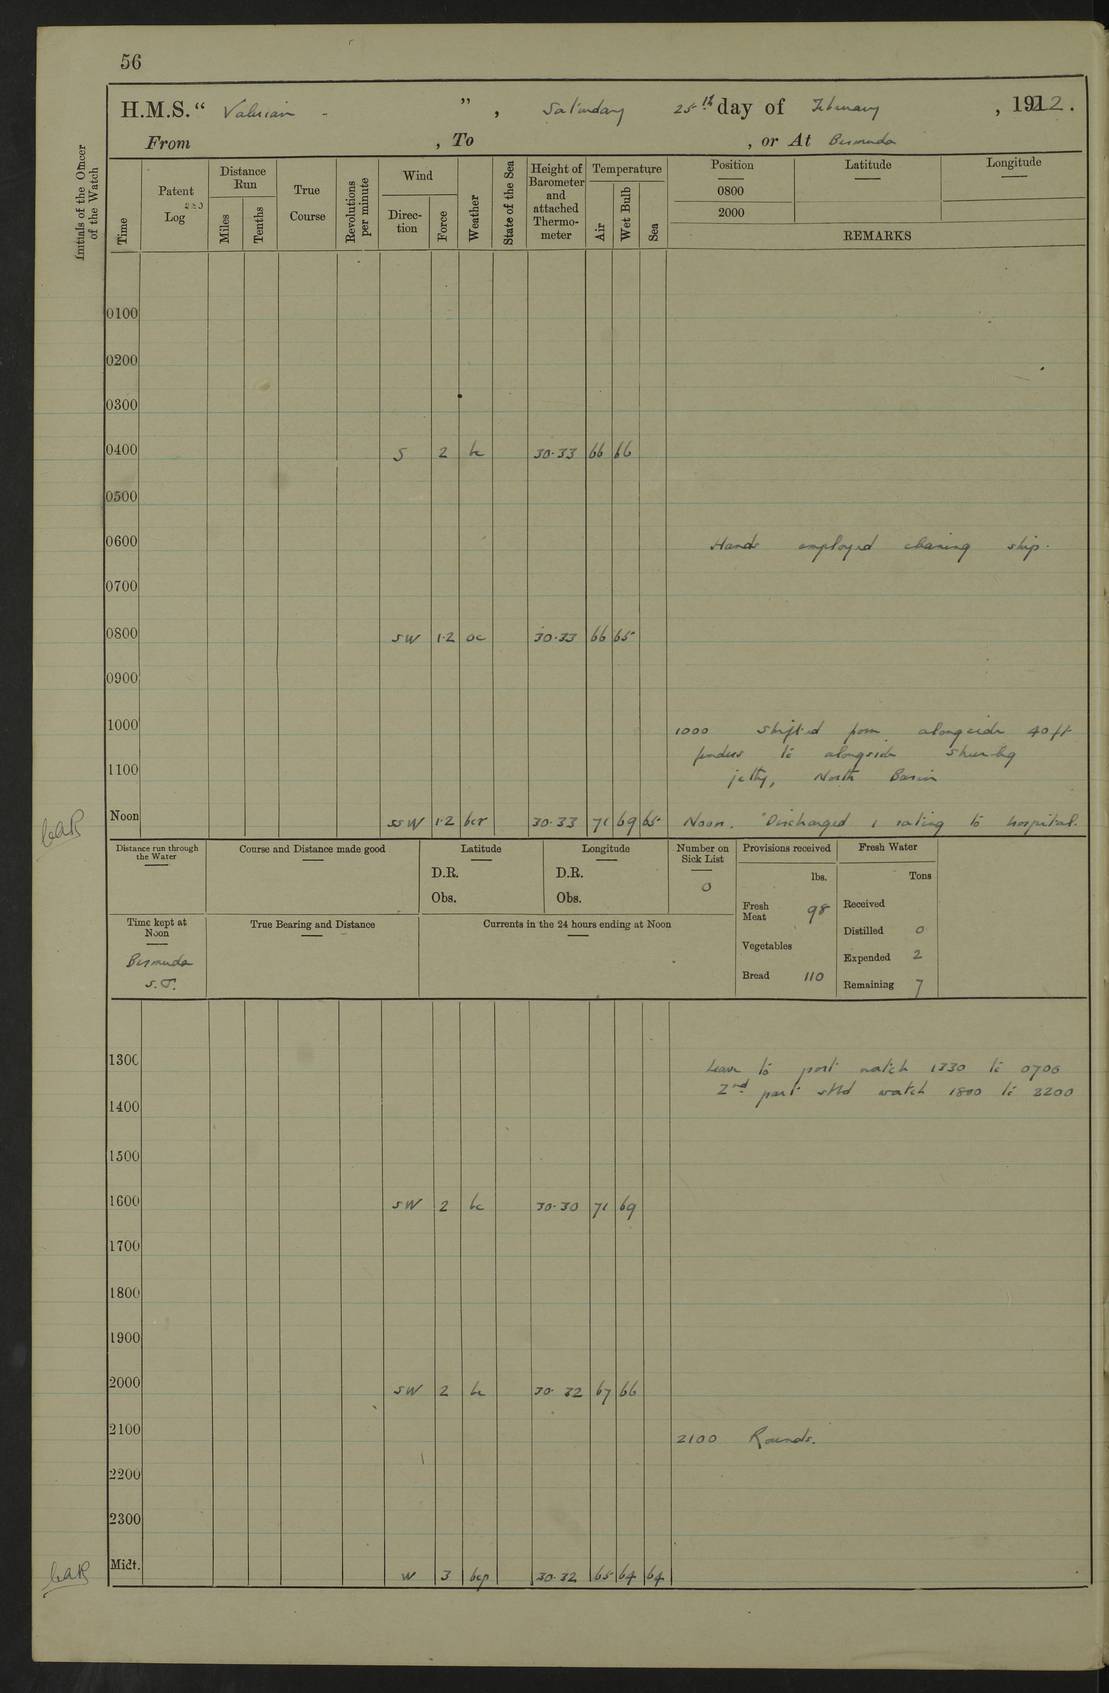 56
H.M.S. “ Valerian ” , Saturday 25th day of February , 1922.
From , To , or At Bermuda
Initials of the Officer of the Watch
Time
Patent Log
Distance Run
Miles
Tenths
True Course
Revolutions per minute
Wind
Direc-tion
Force
Weather
State of the Sea
Height of Barometer and attached Thermo-meter
Temperature
Air
Wet Bulb
Sea
Position
0800
2000
Latitude
Longitude
REMARKS
0100
0200
0300
0400 S 2 bc 30.33 66 66
0500
0600 Hands employed cleaning ship.
0700
0800 SW 1.2 oc 30.33 66 65
0900
1000 1000 Shifted from alongside 40 ft
fenders to alongside
1100 jetty, North Basin
Noon SSW 1.2 bcr 30.33 71 69 65 Noon. Discharged 1 rating to hospital.
Distance run through the Water
Course and Distance made good
Latitude
D.R.
Obs.
Longitude
D.R.
Obs.
Number on Sick List
0
Provisions received
lbs.
Fresh Meat 98
Vegetables
Bread 110
Fresh Water
Tons
Received
Distilled 0
Expended 2
Remaining 7
Time kept at Noon
Bermuda
S.T.
True Bearing and Distance
Currents in the 24 hours ending at Noon
1300 Leave to port watch 1330 to 0700
2nd part stbd watch 1800 to 2200
1400
1500
1600 SW 2 bc 30.30 71 69
1700
1800
1900
2000 SW 2 bc 30.32 67 66
2100 2100 Rounds.
2200
2300
Midt. W 3 bcp 30.32 65 64 64